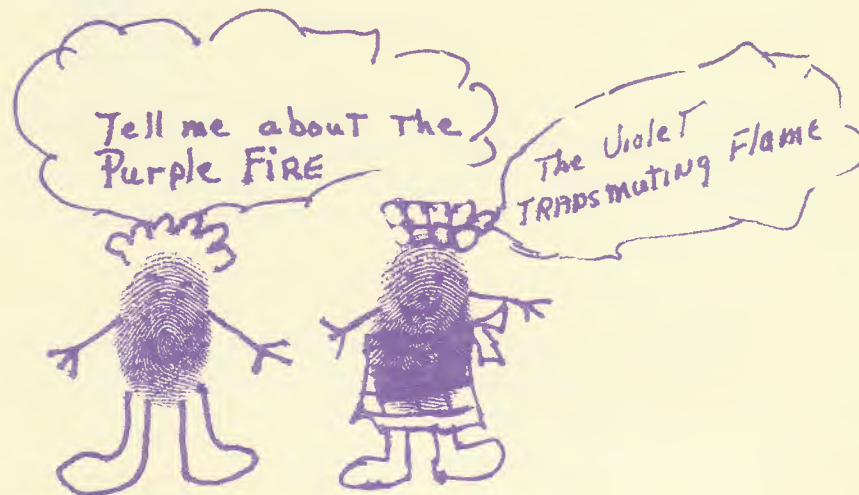 Tell me about The
Purple FIRE
The Violet
TRANSmuting Flame